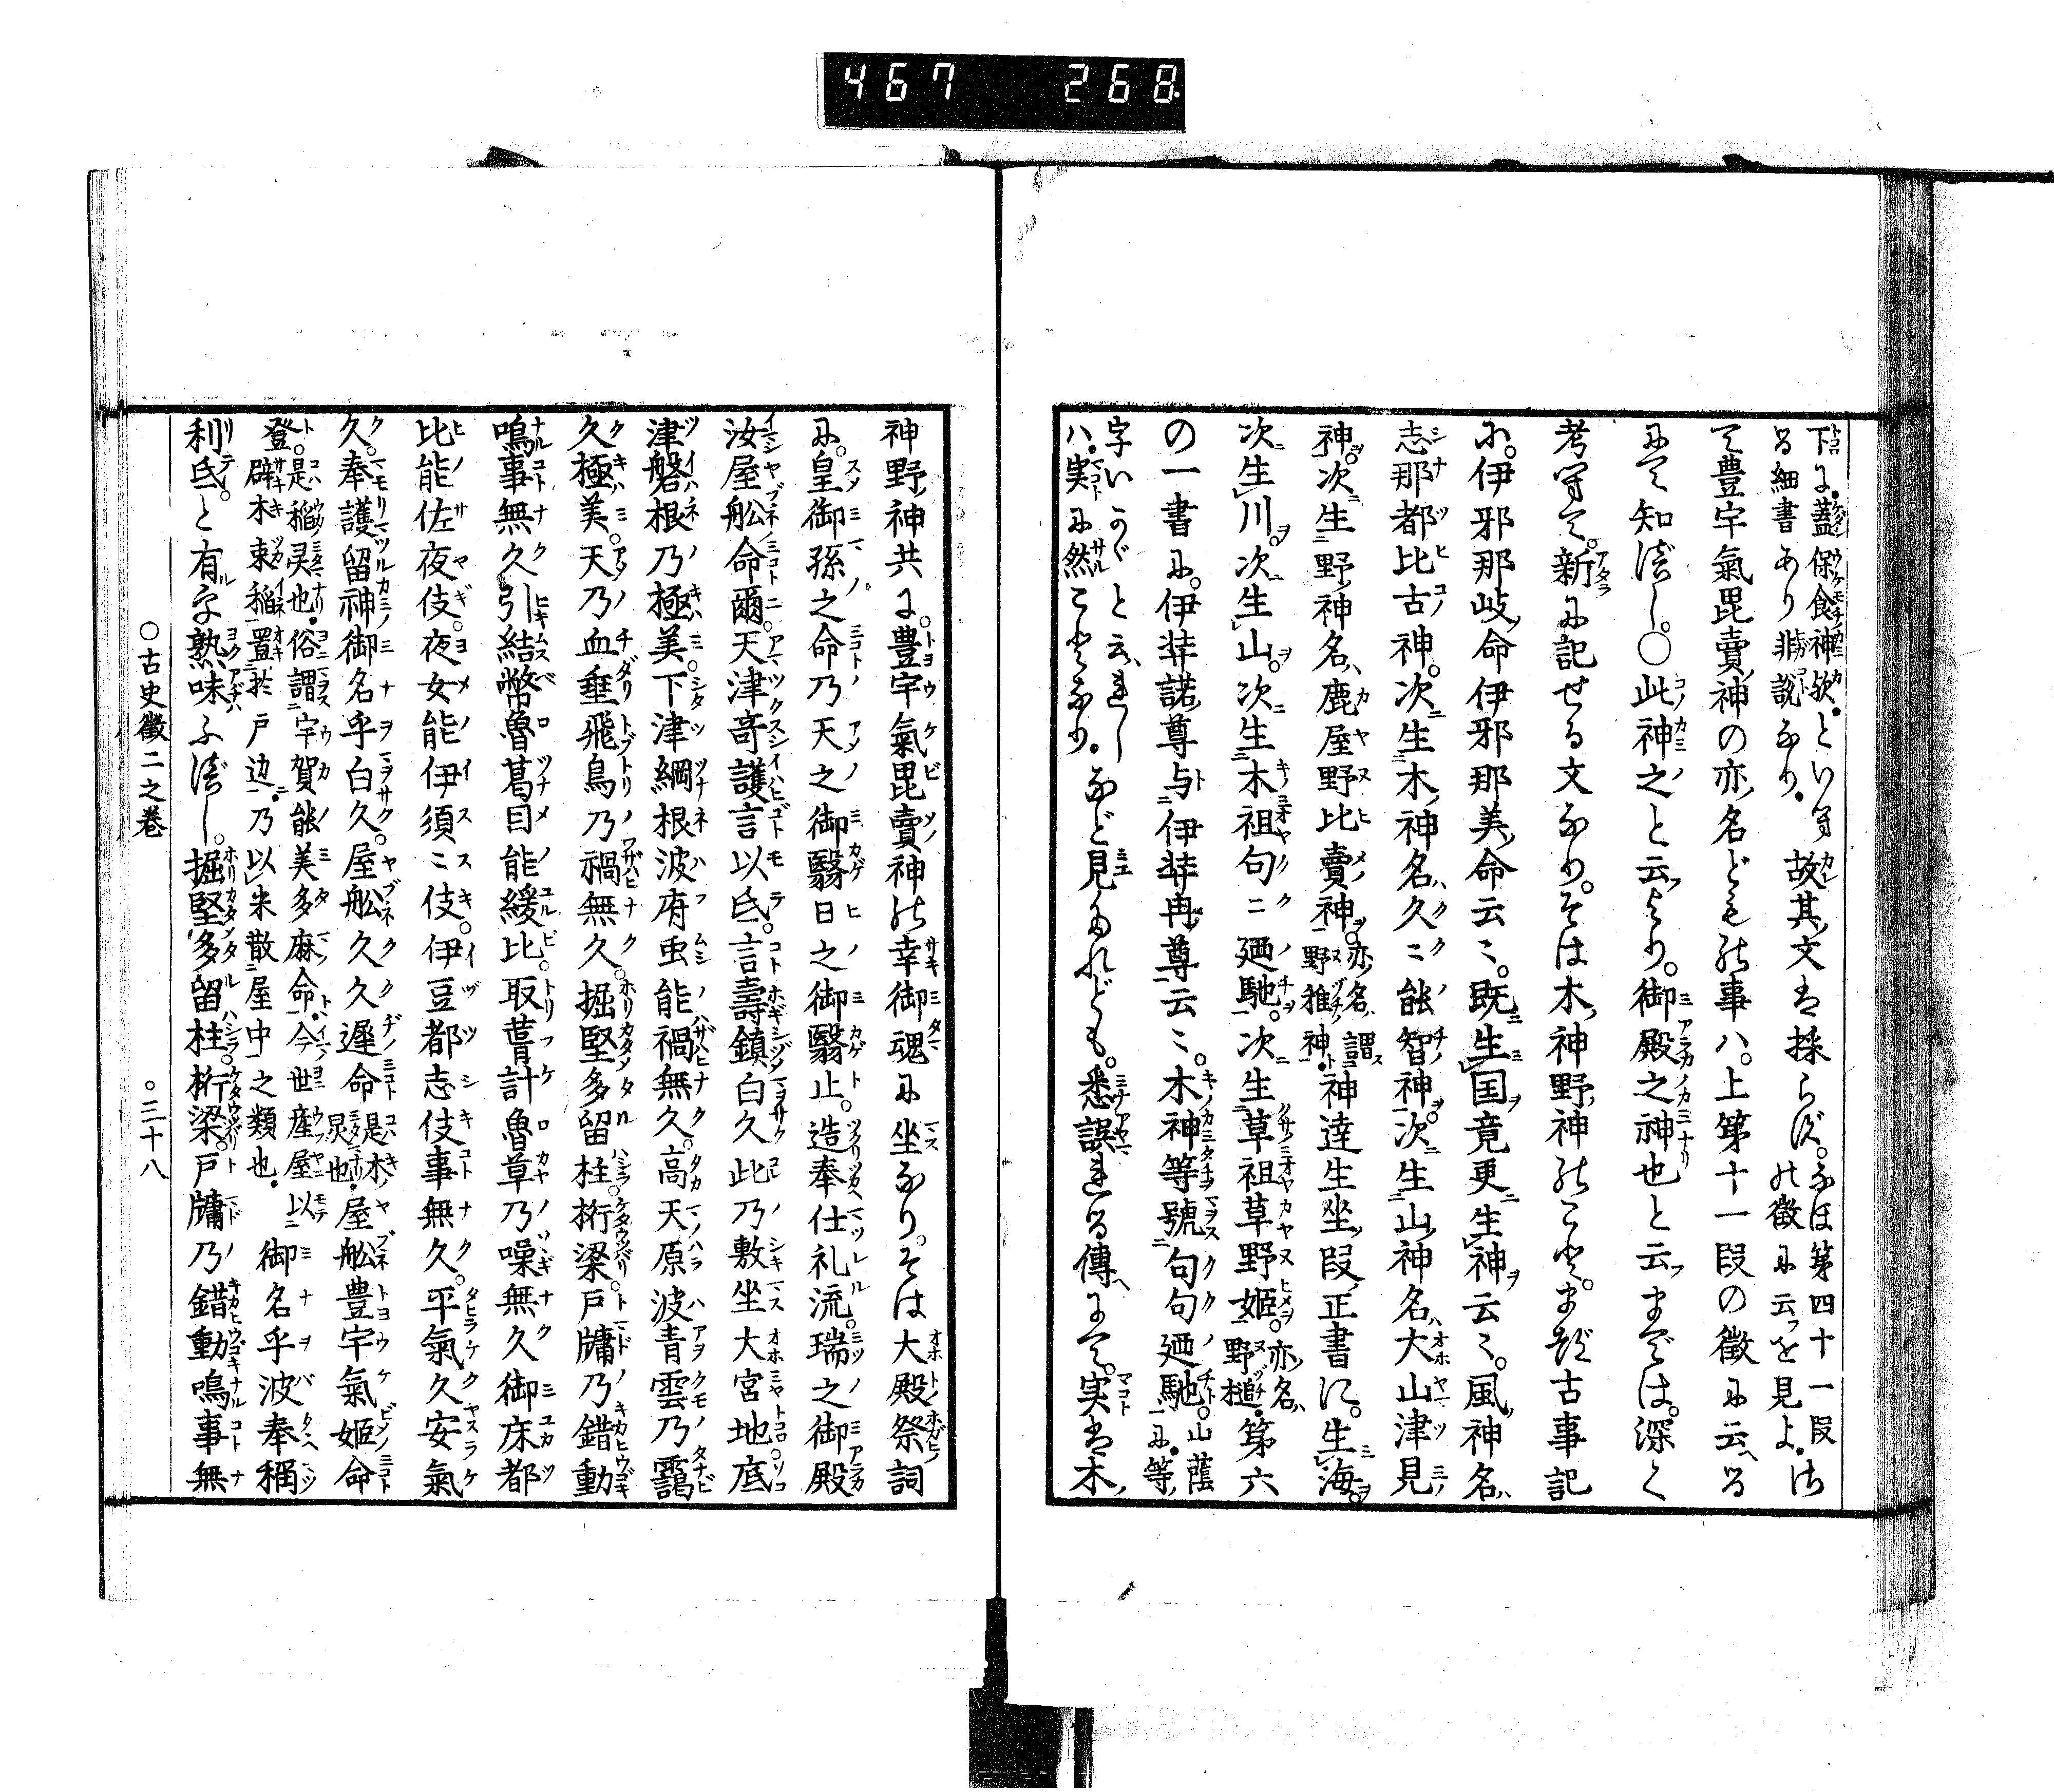 467 268
下に。蓋保食神歟。といふ
る細書あり非説なり。故其文は採らず。なほ第四十一段の徴に云ふを見よ。
て豊宇氣毘賣神の亦名ども此事ハ。上第十一段の徴に云へる
にて知べし。○此神之と云より。御殿之神也と云までは。深く
考へて。新に記せる文なり。そは木神野神のこと。まづ古事記
に。伊邪那岐命伊邪那美命云々。既生国竟更生神云々。風神名
志那都比古神。次生木神名久々能智神。次生山神名大山津見
神。次生野神名鹿屋野比賣神。亦名謂野椎神。神達生坐段正書に。生海。
次生川。次生山。次生木祖句々廼馳。次生草祖草野姫。亦名野槌。第六
の一書に。伊弉諾尊与伊弉冉尊云々。木神等號句句廼馳。に。等
字いかゞと云れしハ。実に然ることなり。など見たれども。悉誤れる傳にて。実は木
神野神共に。豊宇氣毘賣神の幸御魂に坐なり。そは大殿祭詞
に。皇御孫之命乃天之御翳日之御翳止。造奉仕礼流。瑞之御殿
汝屋舩命爾。天津奇護言以氐。言壽鎮白久此乃敷坐大宮地底
津磐根乃極美。下津綱根波府虫能禍無久。高天原波青雲乃靄
久極美。天乃血垂飛鳥乃禍無久。掘堅多留柱。桁梁。戸牖乃錯動
鳴事無久引結幣魯葛目能緩比。取葺計魯草乃噪無久御床都
比能佐夜伎。夜女能伊須々伎。伊豆都志伎事無久。平氣久安氣
久。奉護留神御名乎白久。屋舩久久遲命是木霊也。屋舩豊宇氣姫命
登。是稲灵也。俗謂宇賀能美多麻命。今世産屋以
辟木束稲置於戸边。乃以米散屋中之類也。御名乎波奉稱
利氐。と有字熟味ふべし。掘堅多留柱。桁梁。戸牖乃錯動鳴事無
○古史徴二之巻 ○三十八